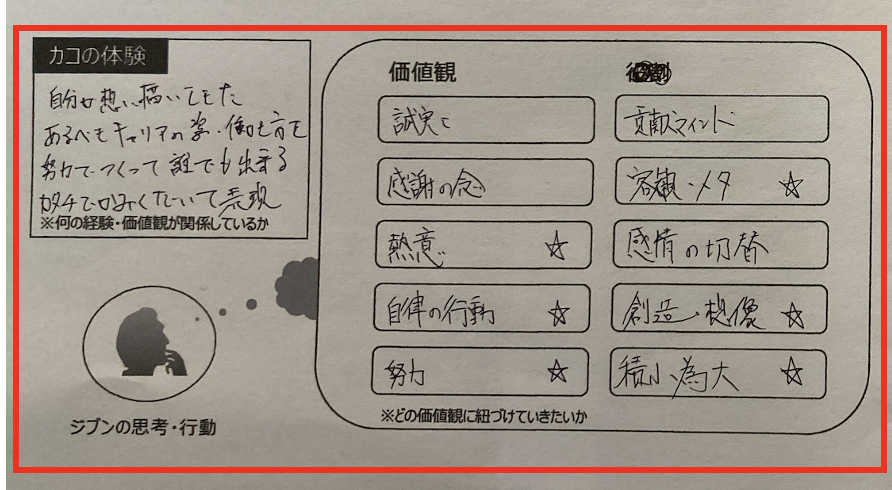 カコの体験
自分が想い描いてきた
あるべきキャリアの姿・働き方を
努力でつくって誰でも出来る
カタチでかみくだいて表現
※何の経験・価値観が関係しているか
ジブンの思考・行動
価値観
誠実さ
感謝の念
熱意 ☆
自律の行動 ☆
努力 ☆
貢献マインド
客観・メタ ☆
感情の切替
創造・想像 ☆
積小為大 ☆
※どの価値観に紐づけていきたいか